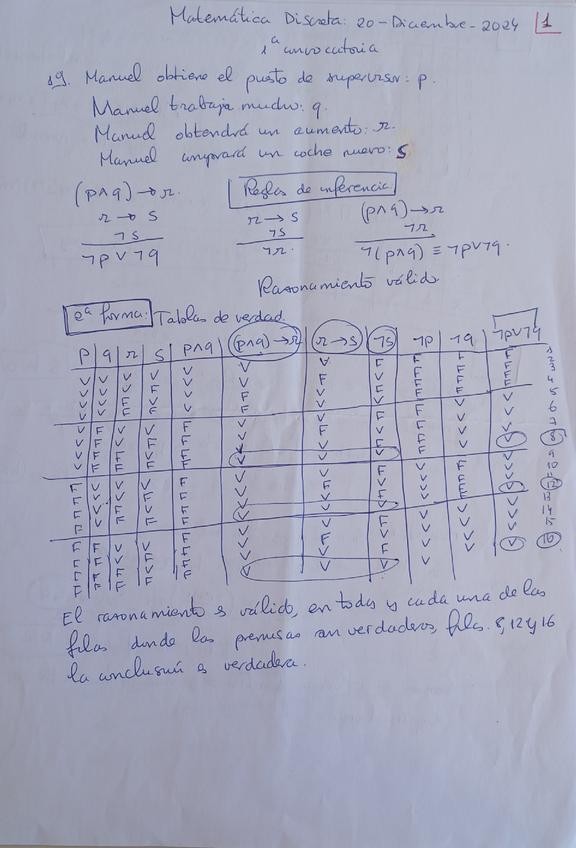 Matemática Discreta: 20-Diciembre-2024 1
1ª convocatoria
19. Manuel obtiene el puesto de supervisor: p.
Manuel trabaja mucho: q.
Manuel obtendrá un aumento: r.
Manuel comprará un coche nuevo: s
(p∧q) → r. Reglas de inferencia
r → s r → s (p∧q) → r
¬s ¬s ¬r
¬p∨¬q ¬r. ¬(p∧q) ≡ ¬p∨¬q.
Razonamiento válido
2ª forma: Tablas de verdad
p q r s p∧q (p∧q)→r r→s ¬s ¬p ¬q ¬p∨¬q
V V V V V V V F F F F 1
V V V F V V F V F F F 2
V V F V V F V F F F F 3
V V F F V F V V F F F 4
V F V V F V V F F V V 5
V F V F F V F V F V V 6
V F F V F V V F F V V 7
V F F F F V V V F V V 8
F V V V F V V F V F V 9
F V V F F V F V V F V 10
F V F V F V V F V F V
F V F F F V V V V F V 12
F F V V F V V F V V V 13
F F V F F V F V V V V 14
F F F V F V V F V V V 15
F F F F F V V V V V V 16
El razonamiento es válido, en todas y cada una de las
filas donde las premisas son verdaderas, filas. 8, 12 y 16
la conclusión es verdadera.